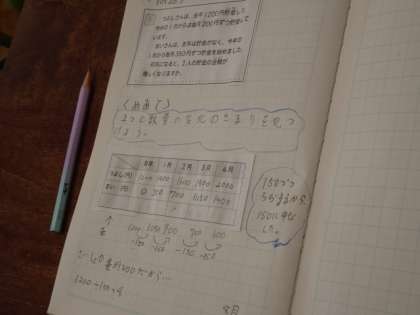 つよしさんは、去年1200円貯金して、
今年の1月からは毎月200円ずつ貯金をして
います。
まいさんは、去年は貯金がなく、今年の
1月から毎月350円ずつ貯金を始めました。
何月になると、2人の貯金の金額が
等しくなりますか。
〈めあて〉
2つの数量の変化のきまりを見つ
けよう。
0月 1月 2月 3月 4月
つよし(円) 1200 1400 1600 1800 2000
まい(円) 0 350 700 1050 1400
差 1200 1050 900 750 600
-150 -150 -150 -150
150ずつ
ちぢまるから
150に
した。
1200÷150=8
8月